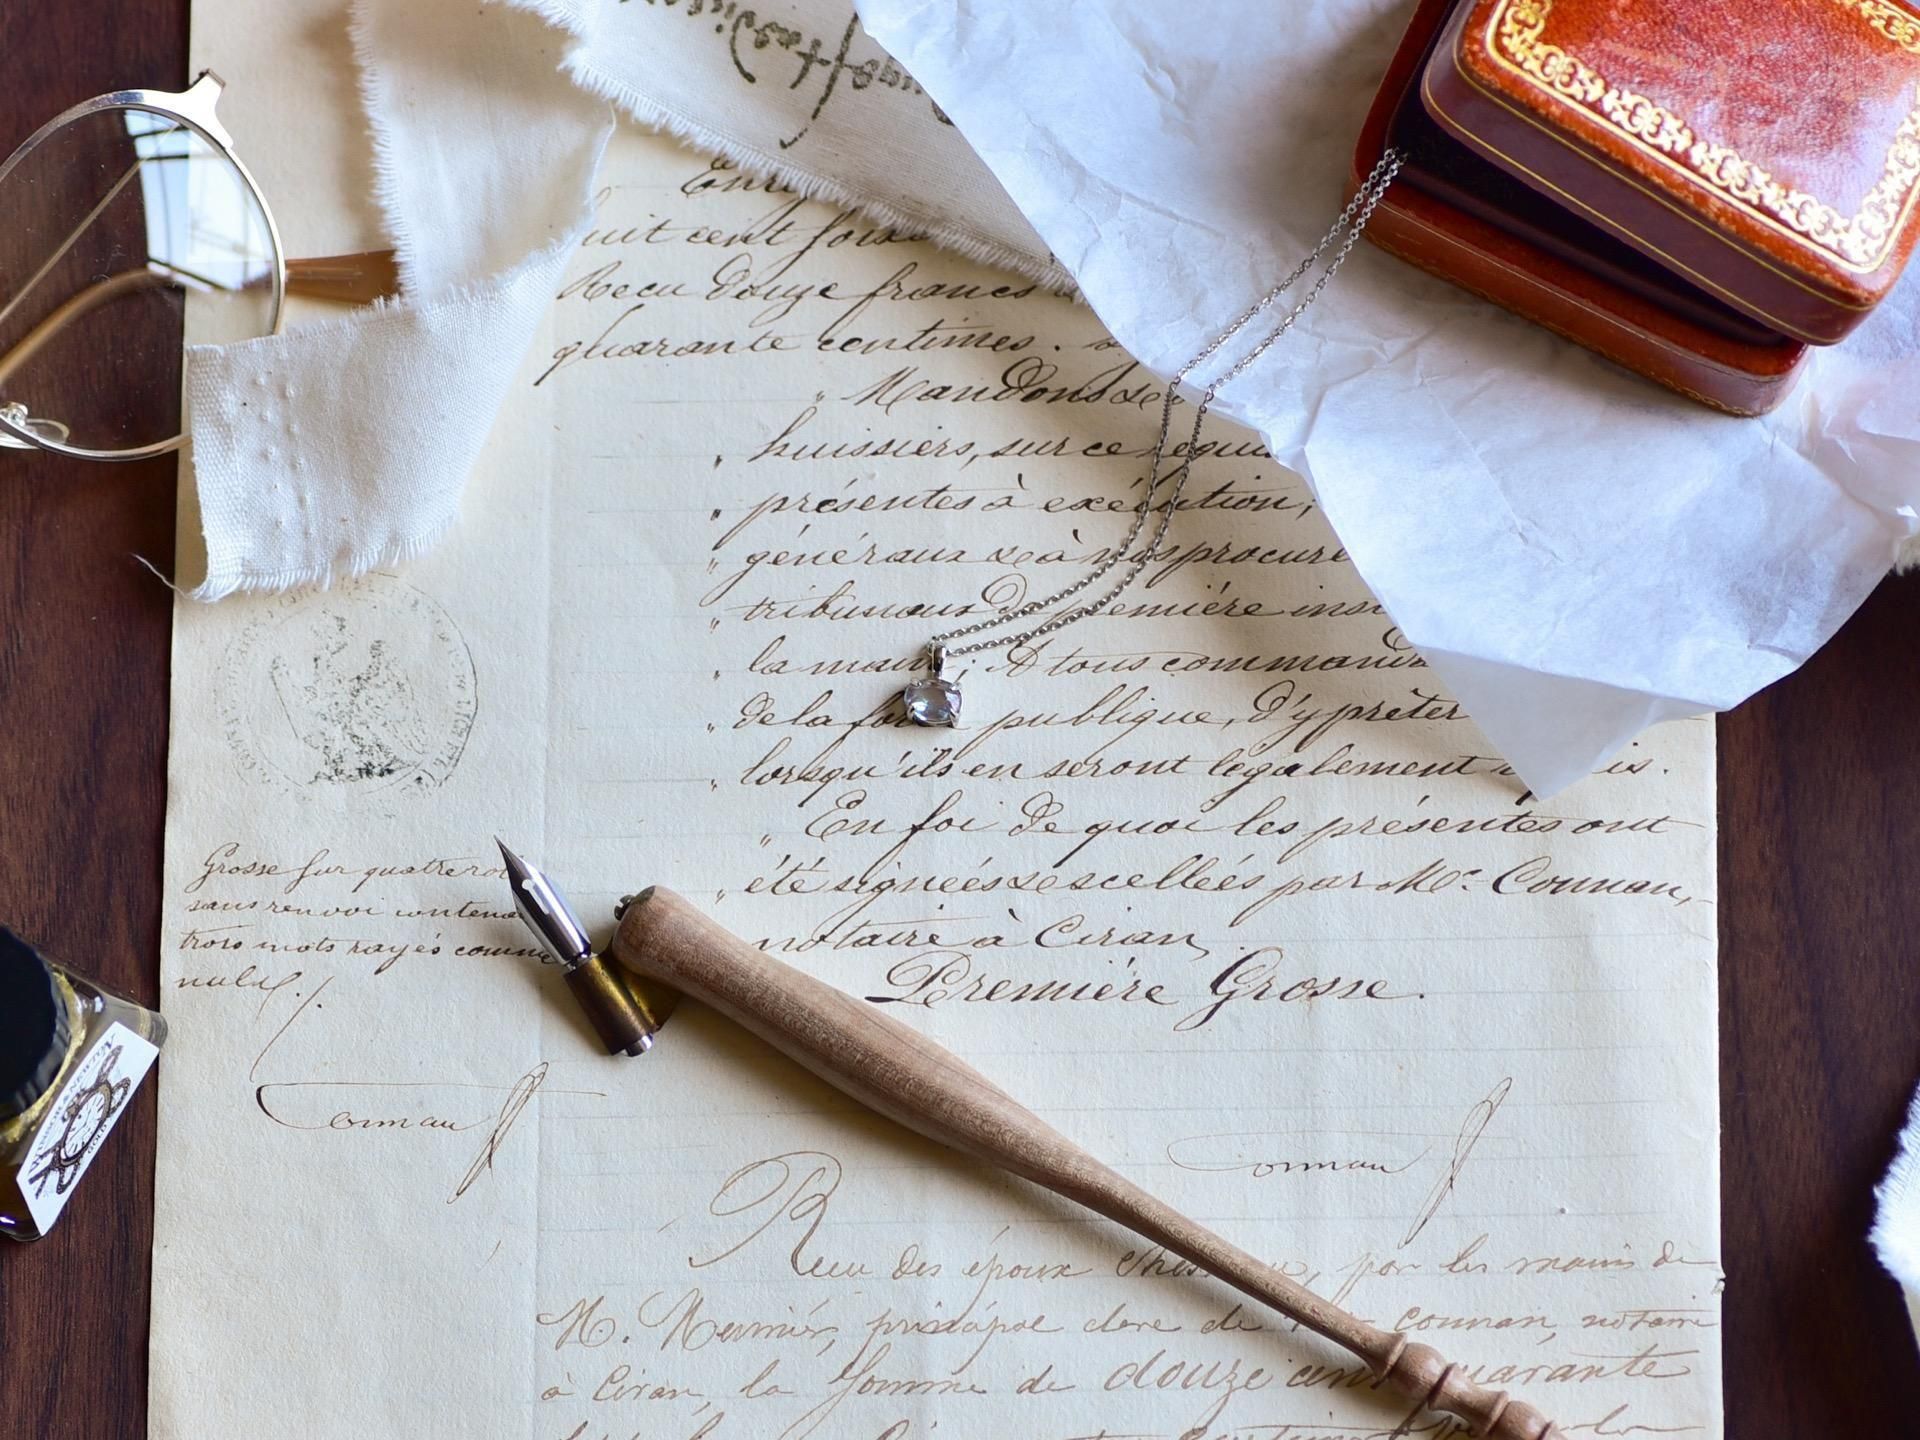 Enre
huit cent soix
Recu Douze francs
quarante centimes.
„ Mandons &
„ huissiers, sur ce requi
„ présentes à exécution;
„ généraux & à nos procure
„ tribunaux De première inst
„ la main; A tous command
„ De la force publique, D'y prêter
„ lorsqu'ils en seront légalement is.
„ En foi De quoi les présentes ont
„ été signées & scellées par Me. Connan,
notaire à Ciran,
Première Grosse.
Grosse sur quatre rol
sans renvoi contenant
trois mots rayés comme
nuls./.
Connan
Connan
Recu des époux, par les mains de
M. Meunier, principal clerc de Me Connan, notaire
à Ciran, la somme de douze cent quarante
WINSOR & NEWTON
GOLD